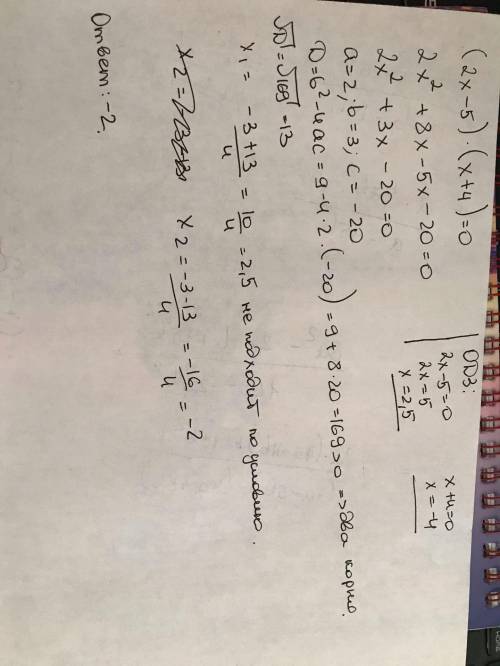 (2x-5)·(x+4)=0
2x² + 8x - 5x - 20 = 0
2x² + 3x - 20 = 0
a=2; b=3; c=-20
D=b²-4ac = 9-4·2·(-20) = 9+8·20 = 169>0 => два корня.
√D = √169 = 13
x₁ = (-3+13)/4 = 10/4 = 2,5 не подходит по условию.
x₂ = x₂ = (-3-13)/4 = -16/4 = -2
Ответ: -2.
ОДЗ:
2x-5=0
2x=5
x=2,5
x+4=0
x=-4